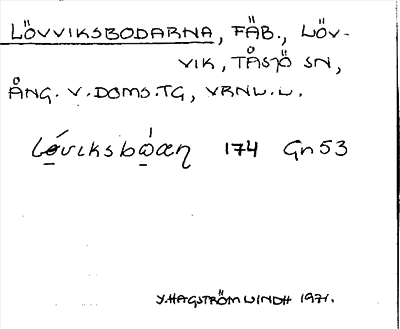 LÖVVIKSBODARNA, FÄB., LÖV-
VIK, TÅSJÖ SN,
ÅNG. V. DOMS.TG, VRNL.L.
Lóviksbὼæη 174 Gn 53
Y. HAGSTRÖM LINDH 1971.